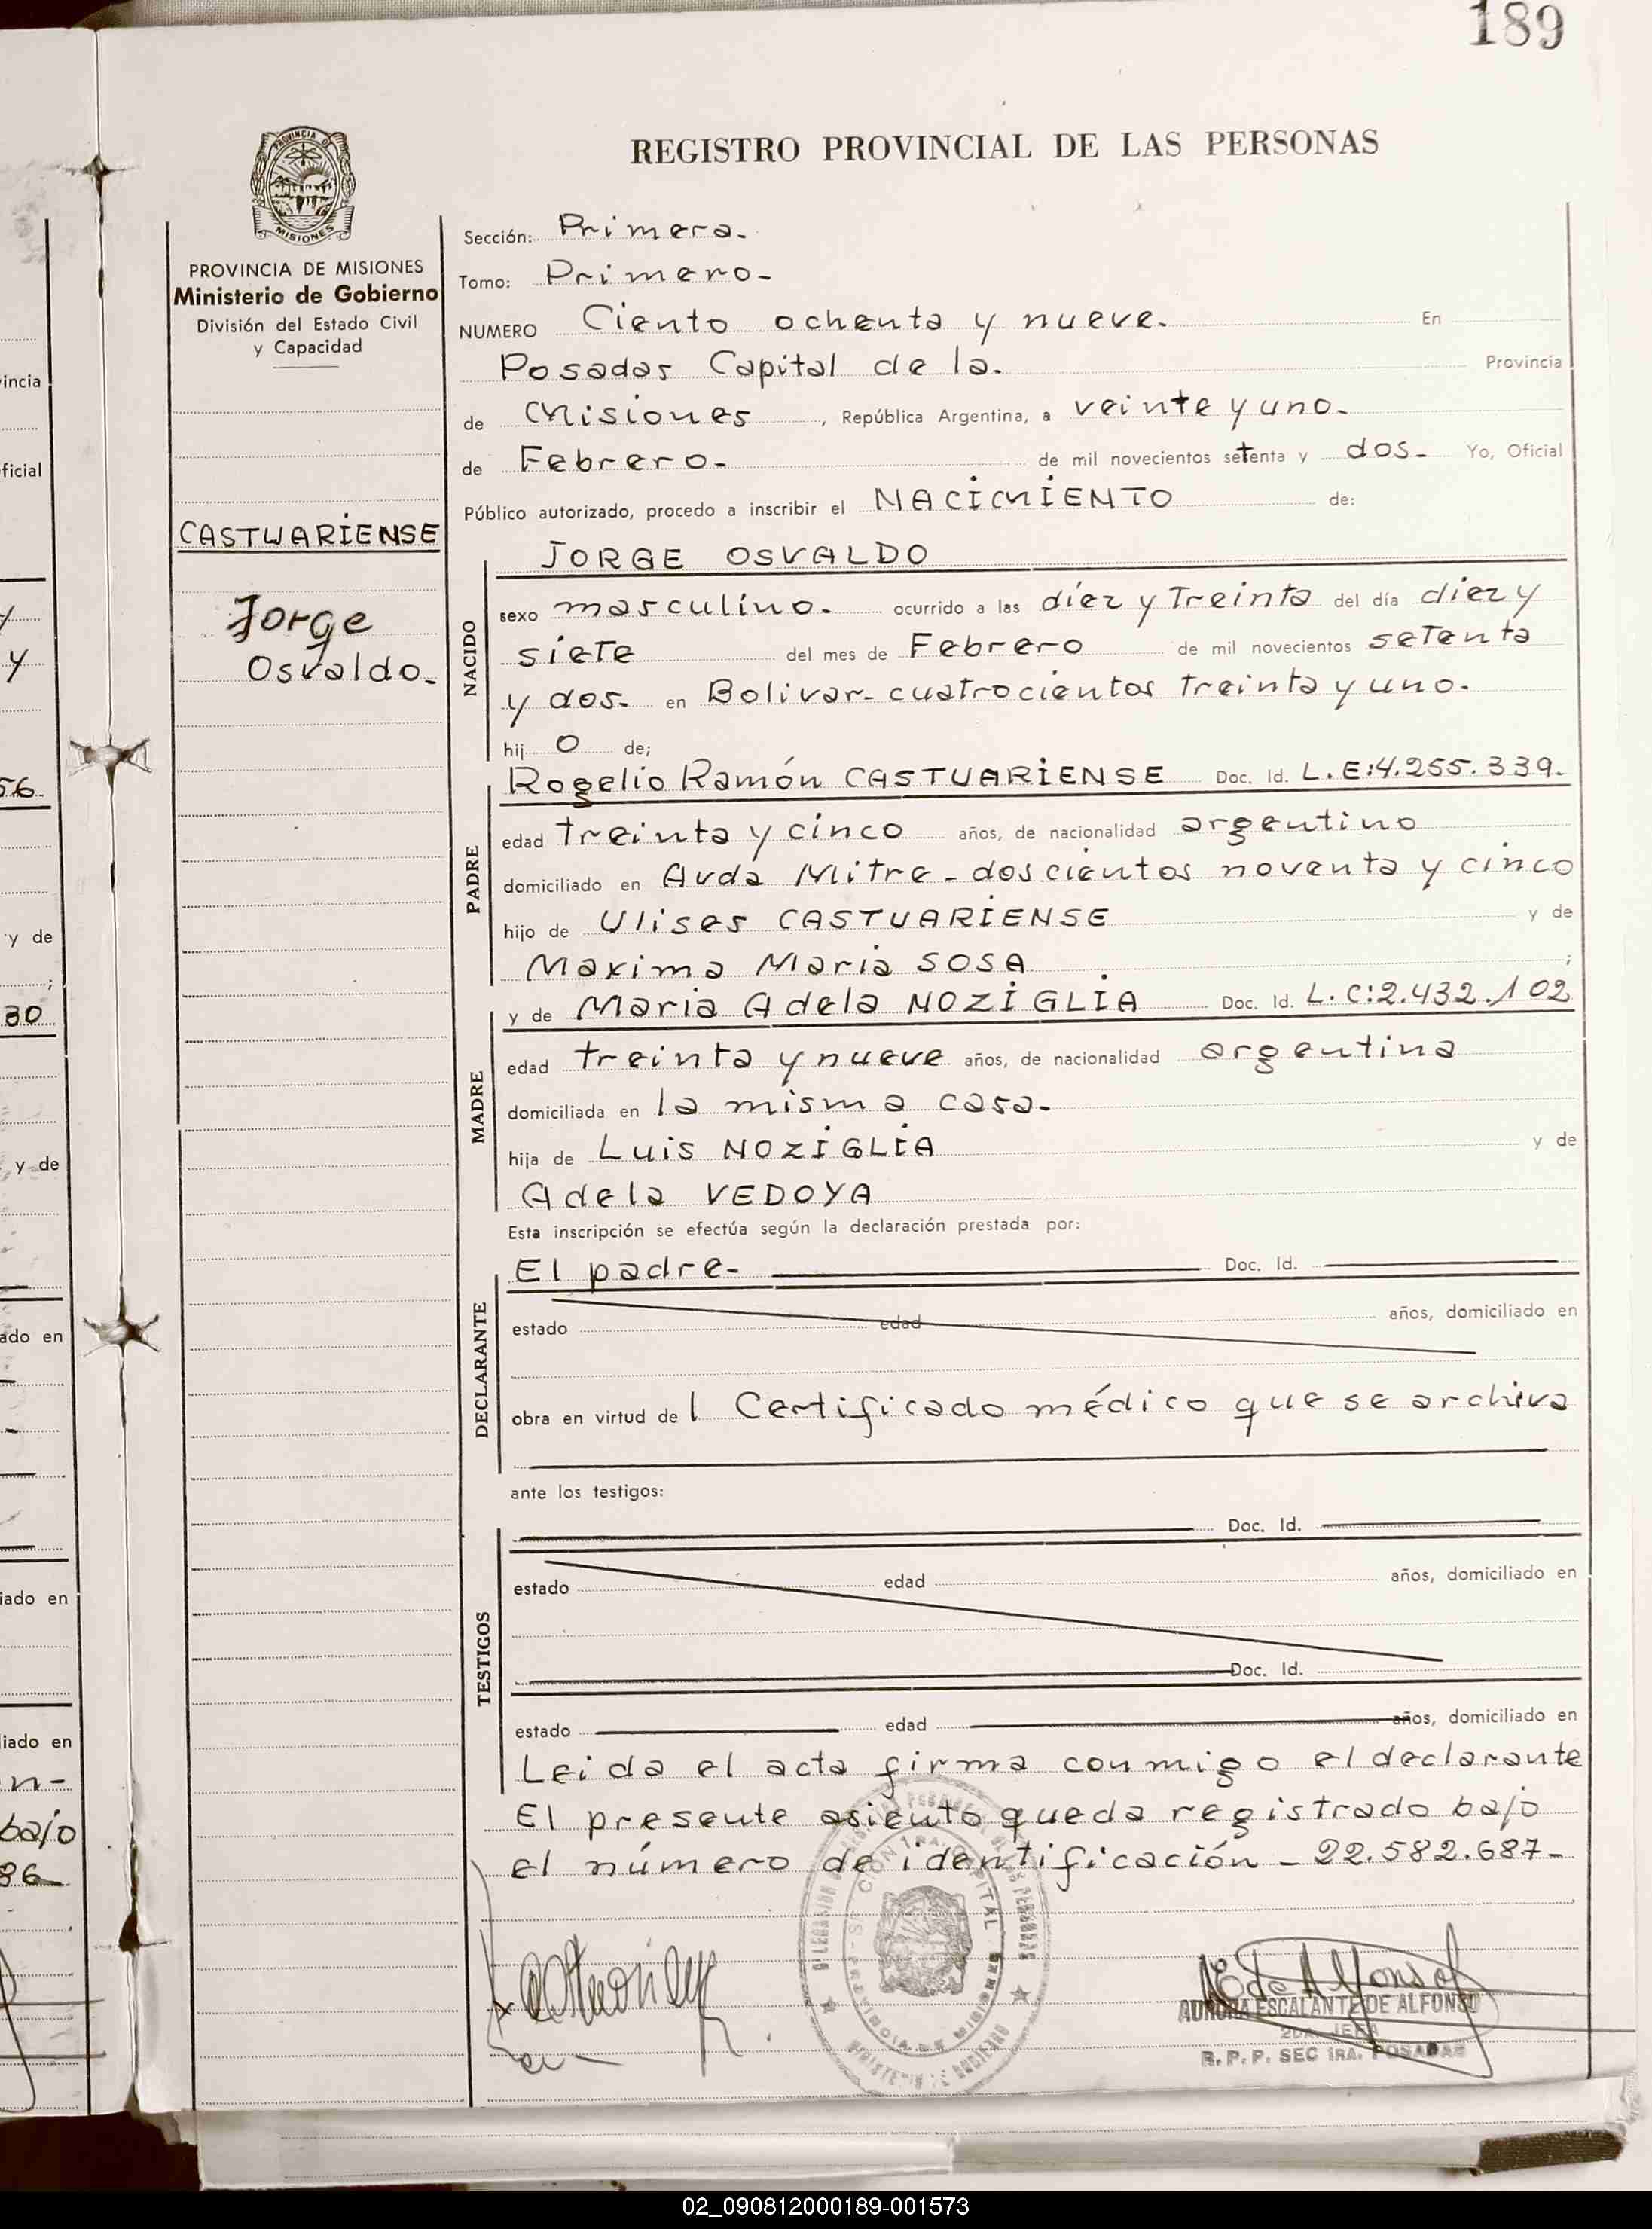 189
REGISTRO PROVINCIAL DE LAS PERSONAS
PROVINCIA DE MISIONES
PROVINCIA DE MISIONES
Ministerio de Gobierno
División del Estado Civil
y Capacidad
CASTUARIENSE
Jorge
Osvaldo.
Sección: Primera.
Tomo: Primero-
NUMERO Ciento ochenta y nueve. En
Posadas Capital de la. Provincia
de Misiones, República Argentina, a veinte y uno.
de Febrero. de mil novecientos setenta y dos. Yo, Oficial
Público autorizado, procedo a inscribir el NACIMIENTO de:
NACIDO
JORGE OSVALDO
sexo masculino. ocurrido a las diez y Treinta del día diez y
siete del mes de Febrero de mil novecientos setenta
y dos. en Bolivar- cuatrocientos treinta y uno.
hij o de;
PADRE
Rogelio Ramón CASTUARIENSE Doc. Id. L.E:4.255.339.
edad treinta y cinco años, de nacionalidad argentino
domiciliado en Avda Mitre - doscientos noventa y cinco
hijo de Ulises CASTUARIENSE y de
Maxima Maria SOSA ;
MADRE
y de Maria Adela NOZIGLIA Doc. Id. L.C:2.432.102
edad treinta y nueve años, de nacionalidad argentina
domiciliada en la misma casa.
hija de Luis NOZIGLIA y de
Adela VEDOYA
Esta inscripción se efectúa según la declaración prestada por:
DECLARANTE
El padre- Doc. Id.
estado edad años, domiciliado en
obra en virtud de l Certificado médico que se archiva
ante los testigos:
TESTIGOS
Doc. Id.
estado edad años, domiciliado en
Doc. Id.
estado edad años, domiciliado en
Leida el acta firma conmigo el declarante
El presente asiento queda registrado bajo
el número de identificación - 22.582.687-
AURORA ESCALANTE DE ALFONSO
2DA. JEFA
R.P.P. SEC 1RA. POSADAS
incia
ficial
y
y
56.
y de
;
30
y de
ado en
iado en
iado en
n-
bajo
86
02_090812000189-001573